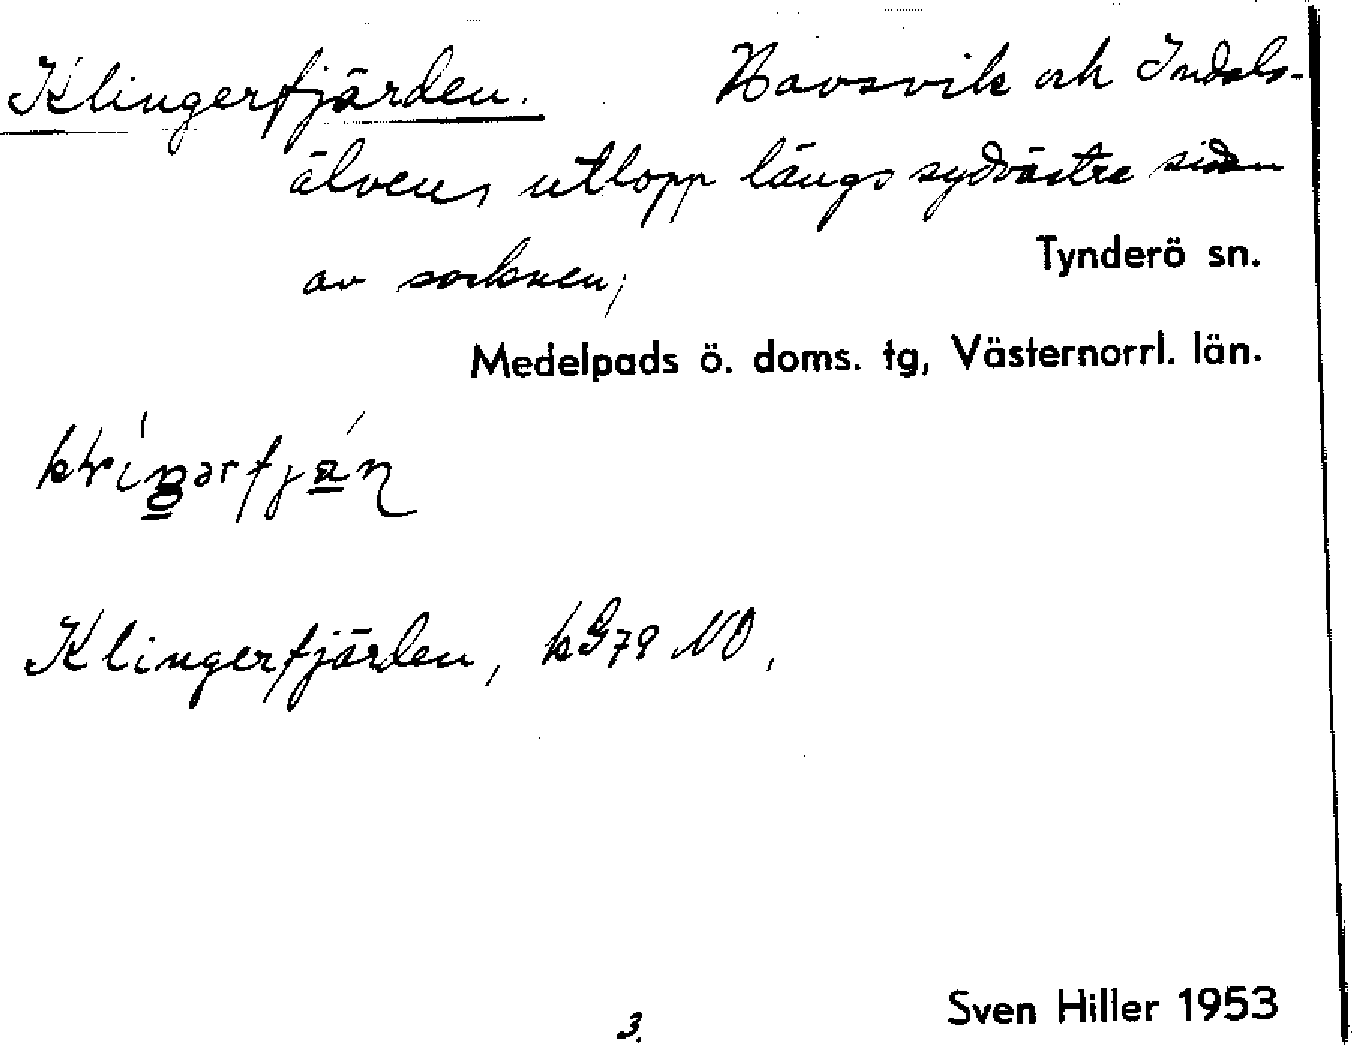 Klingerfjärden. Havsvik och Indals-
älvens utlopp längs sydvästra sidan
av socknen;
Tynderö sn.
Medelpads ö. doms. tg, Västernorrl. län.
Klingerfjärden, kG79 NO,
3.
Sven Hiller 1953